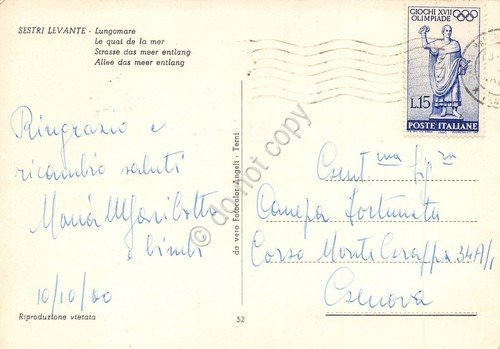 SESTRI LEVANTE - Lungomare
Le quai de la mer
Strasse das meer entlang
Allee das meer entlang
GIOCHI XVII
OLIMPIADE
L.15
POSTE ITALIANE
Ringrazio e
ricambio saluti
Maria
e bimbi
10/10/60
Gent ma Sig ra
Canepa Fortunata
Corso Monte Grappa 34A/1
Genova
da vero Fotocolor Angeli - Terni
© do not copy
Riproduzione vietata
52